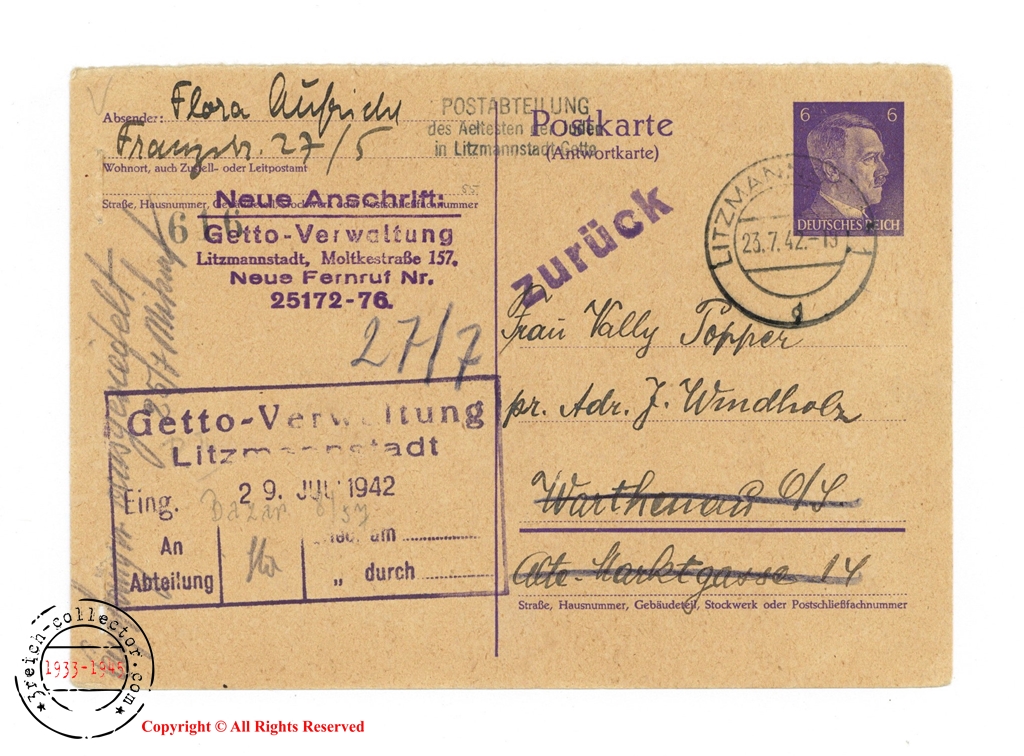 Absender: Flora Aufricht
Franzstr. 27/5
Wohnort, auch Zustell- oder Leitpostamt
Straße, Hausnummer, Gebäudeteil, Stockwerk oder Postschließfachnummer
616
Neue Anschrift:
Getto-Verwaltung
Litzmannstadt, Moltkestraße 157,
Neue Fernruf Nr.
25172-76.
27/7
Getto-Verwaltung
Litzmannstadt
Eing. 29. JULI 1942
An
Abteilung
am
„ durch
POSTABTEILUNG
des Aeltesten der Juden
in Litzmannstadt-Getto
Postkarte
(Antwortkarte)
zurück
6 6
DEUTSCHES REICH
LITZMANN
23.7.42.-19
g
Frau Vally Popper
pr. Adr. J. Windholz
Warthenau O/S.
Alte Marktgasse 14
Straße, Hausnummer, Gebäudeteil, Stockwerk oder Postschließfachnummer
ausgesiedelt
3reich-collector.com
1933-1945
Copyright © All Rights Reserved